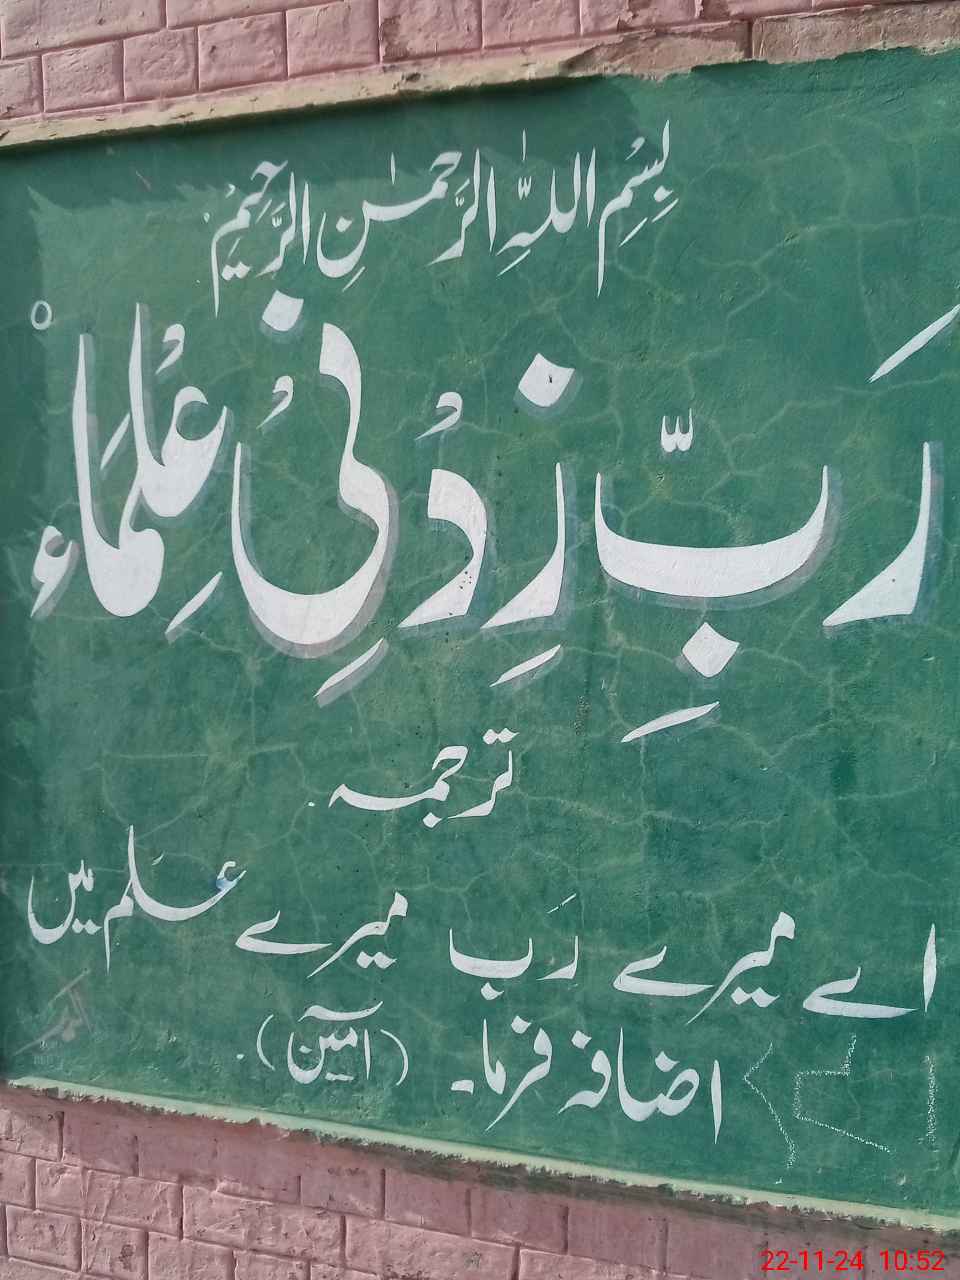 بِسْمِ اللّٰهِ الرَّحْمٰنِ الرَّحِيْمِ
رَبِّ زِدْنِیْ عِلْمَاء
ترجمہ
اے میرے رَب میرے عَلم میں
اضافہ فرما۔ (آمین)
22-11-24 10:52